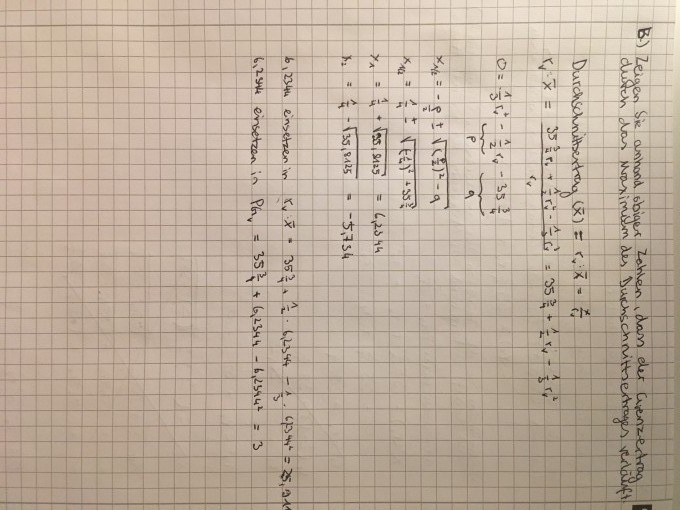 B.) Zeigen Sie anhand obiger Zahlen, dass der Grenzertrag
durch das Maximum des Durchschnittsertrages verläuft.
Durchschnittsertrag (x̄) = r_v : x̄ = x/r_v
r_v : x̄ = (35 3/4 r_v + 1/2 r_v² - 1/3 r_v³)/r_v = 35 3/4 + 1/2 r_v - 1/3 r_v²
0 = 1/3 r_v² - 1/2 r_v - 35 3/4
p q
x_1/2 = - p/2 ± √((p/2)² - q)
x_1/2 = 1/4 ± √((-1/4)² + 35 3/4)
x_1 = 1/4 + √35,8125 = 6,2344
x_2 = 1/4 - √35,8125 = -5,734
6,2344 einsetzen in r_v : x̄ = 35 3/4 + 1/2 · 6,2344 - 1/3 · 6,2344² =
6,2344 einsetzen in PG_v = 35 3/4 + 6,2344 - 6,2344² = 3